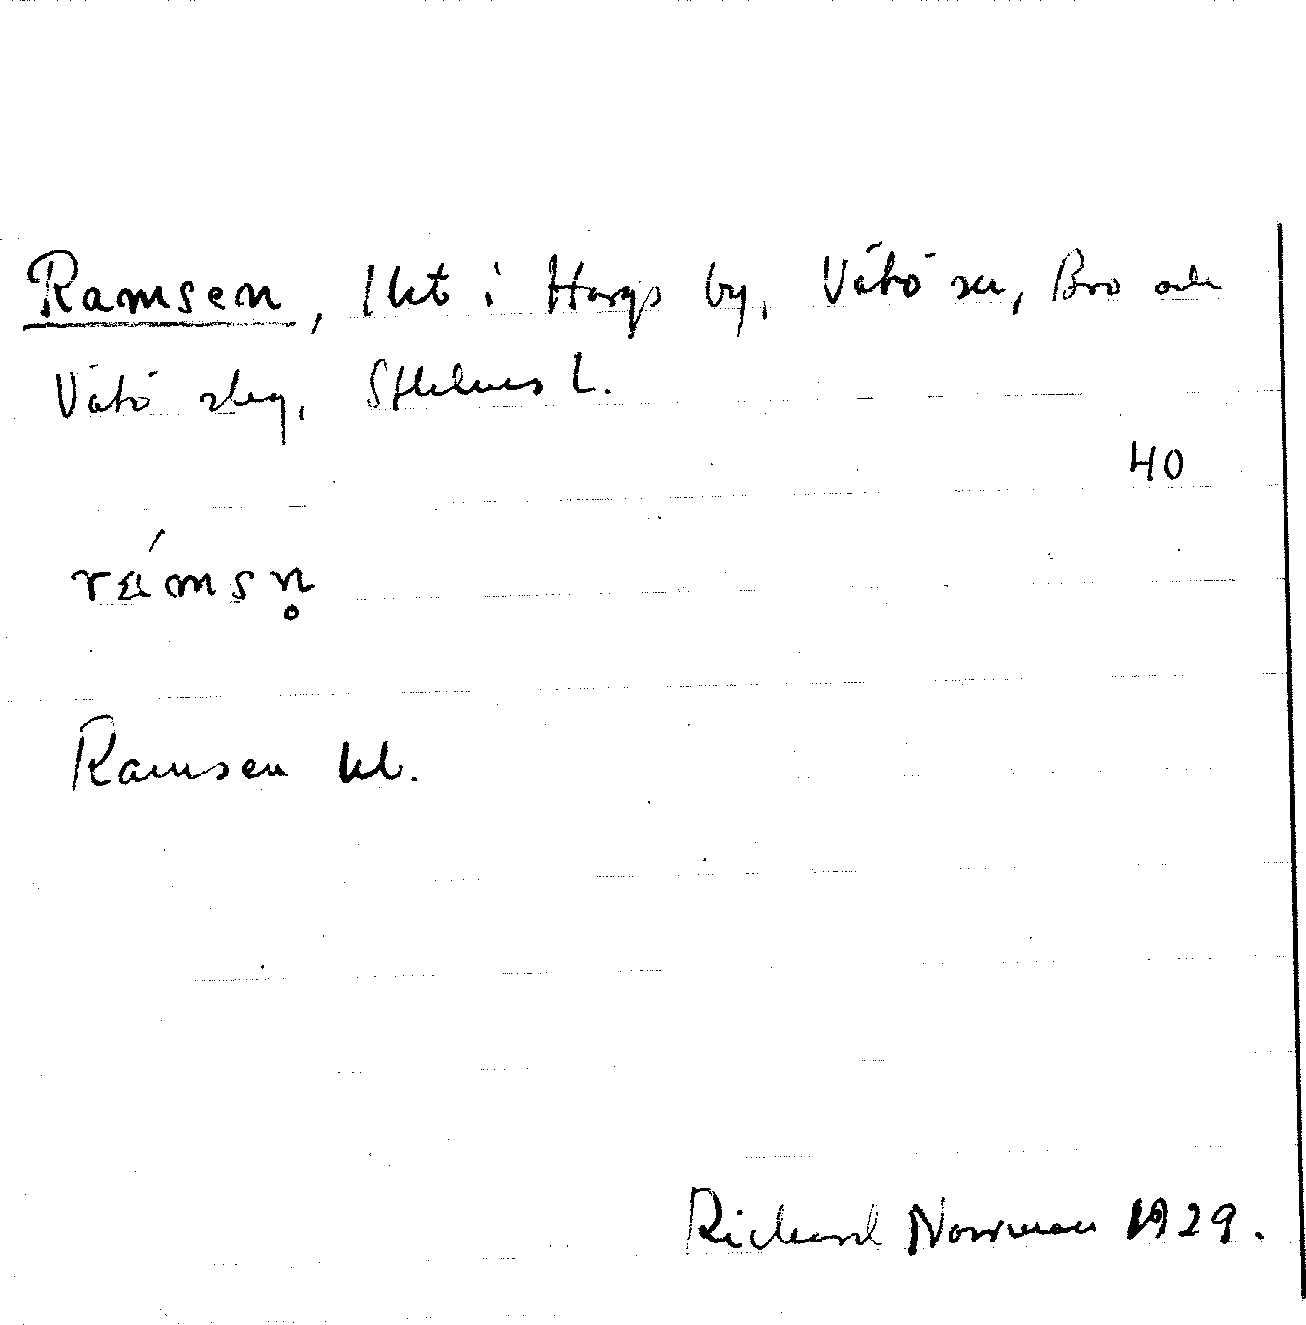 Ramsen, lkt i Hargs by, Vätö sn, Bro och
Vätö skg, Sthlms L.
40
rámsn̥
Ramsen kl.
Richard Norrman 1929.